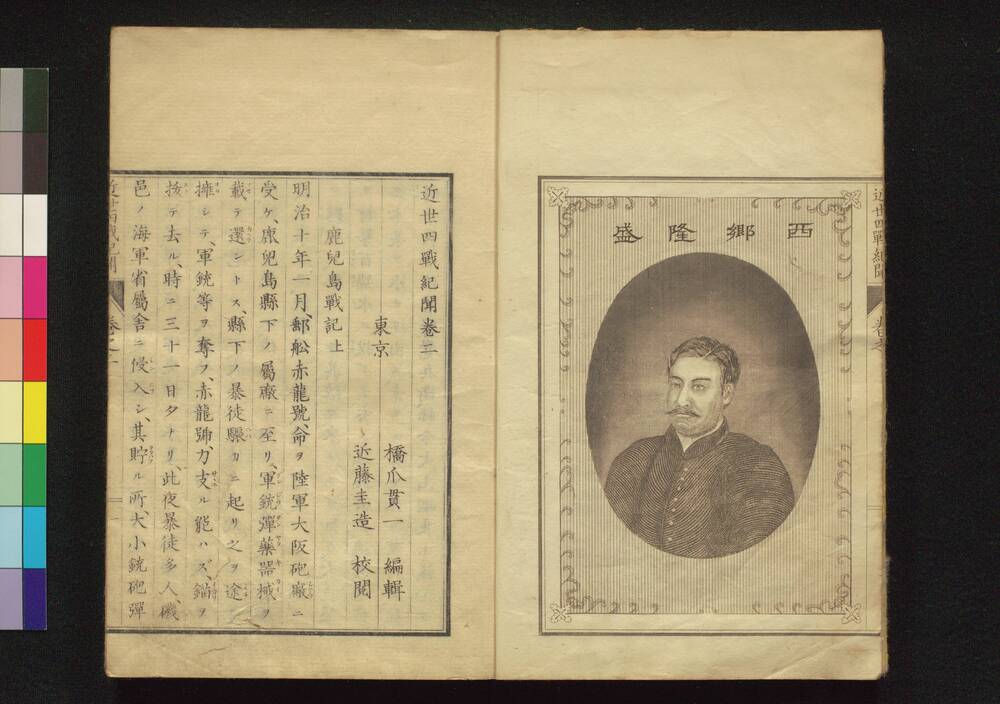 西郷隆盛
近世四戰紀聞卷三
東京
橋爪貫一 編輯
近藤圭造 校閲
鹿兒島戰記上
明治十年一月、郵舩赤龍號、命ヲ陸軍大阪砲廠ニ
受ケ、鹿兒島縣下ノ屬廠ニ至リ、軍銃彈藥器械ヲ
載テ還ントス、縣下ノ暴徒驟カニ起リ之ヲ途ニ
擁シテ、軍銃等ヲ奪フ、赤龍號力支ル能ハズ、錨ヲ
拔テ去ル、時ニ三十一日夕ナリ、此夜暴徒多人、磯
邑ノ海軍省屬舍ニ侵入シ、其貯ル所大小銃砲彈